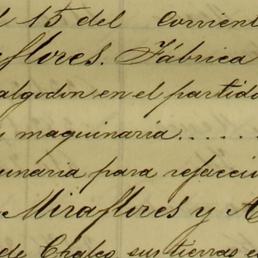 l 15 del corrient
flores. Fábrica
algodon en el partido
y maquinaria......
uinaria para refacció
Miraflores y A
de Chalco sus tierras e